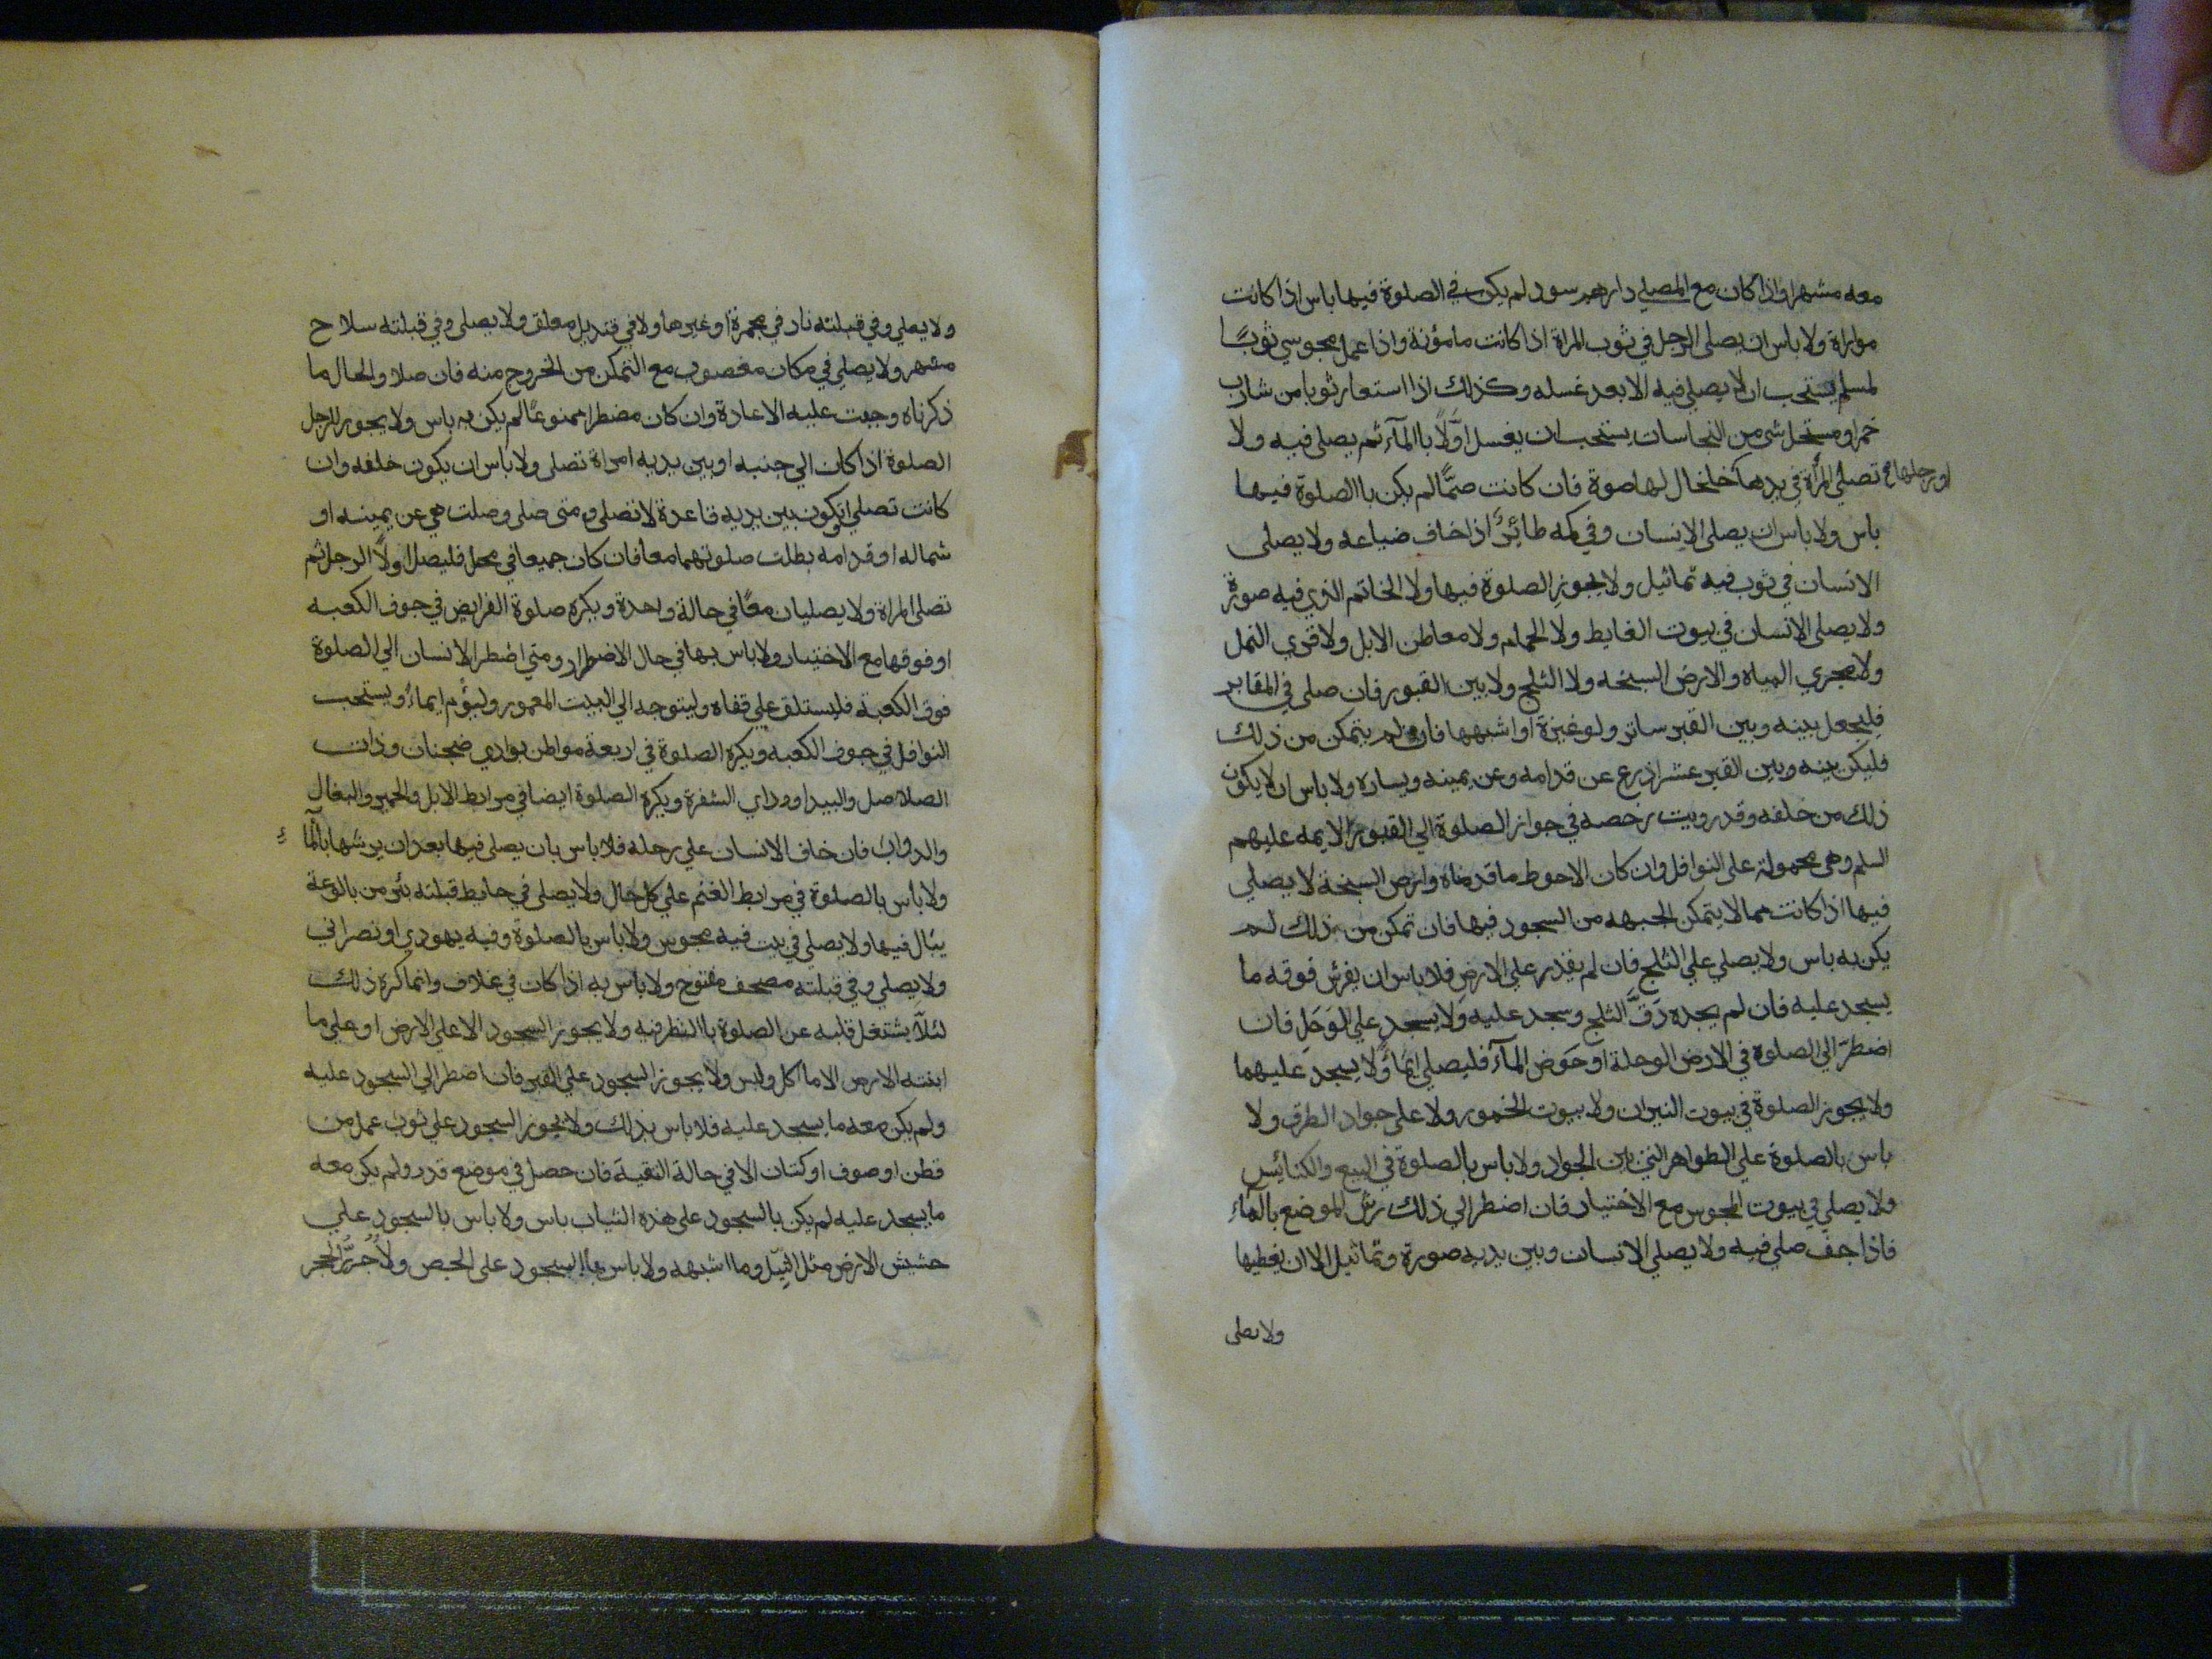 معه مشهرا واذا كان مع المصلي دارهم سود لم يكن في الصلوة فيها باس اذا كانت
مواراة ولا باس ان يصلى الرجل في ثوب المراة اذا كانت مامؤنة واذا عمل مجوسي ثوبًا
لمسلم يستحب ان لا يصلي فيه الا بعد غسله وكذلك اذا استعار ثوبا من شارب
خمر او مستحل شى من النجاسات يستحب ان يغسل اوّلًا باالمآء ثم يصلى فيه ولا
تصلي المرأة في يدها خلخال لها صوة فان كانت صمًّا لم يكن باالصلوة فيها
او رجلها
باس ولا باس ان يصلى الانسان وفي كمه طائرٌ اذا خاف ضياعه ولا يصلى
الانسان في ثوب فيه تماثيل ولا يجوز الصلوة فيها ولا الخاتم الذي فيه صورة
ولا يصلى الانسان في بيوت الغايط ولا الحمام ولا معاطن الابل ولا قرى النمل
ولا مجرى المياه والارض السبخه ولا الثلج ولا بين القبور فان صلى في المقابر
فليجعل بينه وبين القبر ساتر ولو غنزة او اشبهها فان لم يتمكن من ذلك
فليكن بينه وبين القبر عشر اذرع عن قدامه وعن يمينه ويساره ولا باس ان لا يكون
ذلك من خلفه وقد رويت رخصه في جواز الصلوة الي القبور الايمه عليهم
السلم وهى محمولة على النوافل وان كان الاحوط ما قدمناه وارض السبخة لا يصلي
فيها اذا كانت مما لا يتمكن الجبهه من السجود فيها فان تمكن من ذلك لم
يكن به باس ولا يصلي علي الثلج فان لم يقدر علي الارض فلا باس ان يفرش فوقه ما
يسجد عليه فان لم يجده دَقَّ الثلج وسجد عليه ولا يسجد علي الوَحَلِ فان
اضطرّ الي الصلوة في الارض الوحلة او حَوَض المآء فليصلي ايمًاءً ولا يسجد عليهما
ولا يجوز الصلوة في بيوت النيران ولا بيوت الخمور ولا على جواد الطرق ولا
باس بالصلوة علي الظواهر التي بين الجواد ولا باس بالصلوة في البيع والكنايس
ولا يصلي في بيوت المجوس مع الاختيار فان اضطر الي ذلك رش الموضع بالمآءِ
فاذا جفّ صلي فيه ولا يصلي الانسان وبين يديه صورة وتماثيل الا ان يغطيها
ولا يصلى
ولا يصلي وفي قبلته نار في مجمرة او غيرها ولا في قنديل معلق ولا يصلى وفي قبلته سلاح
مشهر ولا يصلي في مكان مغصوب مع التمكن من الخروج منه فان صلا والحال ما
ذكرناه وجبت عليه الاعادة وان كان مضطرا ممنوعًا لم يكن به باس ولا يجوز للرجل
الصلوة اذا كان الي جنبه او بين يديه امراة تصلى ولا باس ان يكون خلفه وان
كانت تصلي او تكون بين يديه قاعدة لا تصلى ومتى صلى وصلت هي عن يمينه او
شماله او قدامه بطلت صلوتهما معا فان كان جميعا في محل فليصل اولًا الرجل ثم
تصلى المراة ولا يصليان معًا في حالة واحدة ويكره صلوة الفرايض في جوف الكعبه
او فوقها مع الاختيار ولا باس بها في حال الاضطرار ومتى اضطر الانسان الي الصلوة
فوق الكعبة فليستلق علي قفاه وليتوجه الي البيت المعمور وليؤم ايماءً ويستحب
النوافل في جوف الكعبه ويكره الصلوة في اربعة مواطن بوادي ضجنان وذات
الصلاصل والبيدا ووداي الشقرة ويكره الصلوة ايضا في مرابط الابل والحمير والبغال
والدواب فان خاف الانسان علي رحله فلا باس بان يصلى فيها بعد ان يرشها بالمآء
ولا بأس بالصلوة في مرابط الغنم علي كل حال ولا يصلى في حايط قبلته ينُز من بالوعة
يبال فيها ولا يصلي في بيت فيه مجوس ولا باس بالصلوة وفيه يهودي او نصراني
ولا يصلي وفي قبلته مصحف مفتوح ولا باس به اذا كان في غلاف وانما كره ذلك
لئلّا يشتغل قلبه عن الصلوة باالنظر فيه ولا يجوز السجود الا على الارض او على ما
انبتته الارض الا ما اكل ولبس ولا يجوز السجود علي القير فان اضطر الي السجود عليه
ولم يكن معه ما يسجد عليه فلا باس بذلك ولا يجوز السجود علي ثوب عمل من
قطن او صوف او كتان الا في حالة التقية فان حصل في موضع قذر ولم يكن معه
ما يسجد عليه لم يكن بالسجود على هذه الثياب باس ولا باس بالسجود علي
حشيش الارض مثل الثيّل وما اشبهه ولا باس بالسجود على الجص ولا